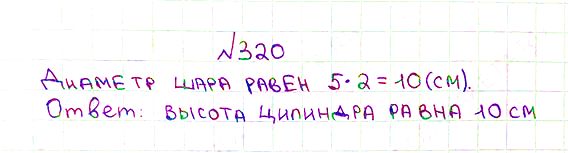 №320
Диаметр шара равен 5·2=10(см).
Ответ: высота цилиндра равна 10 см